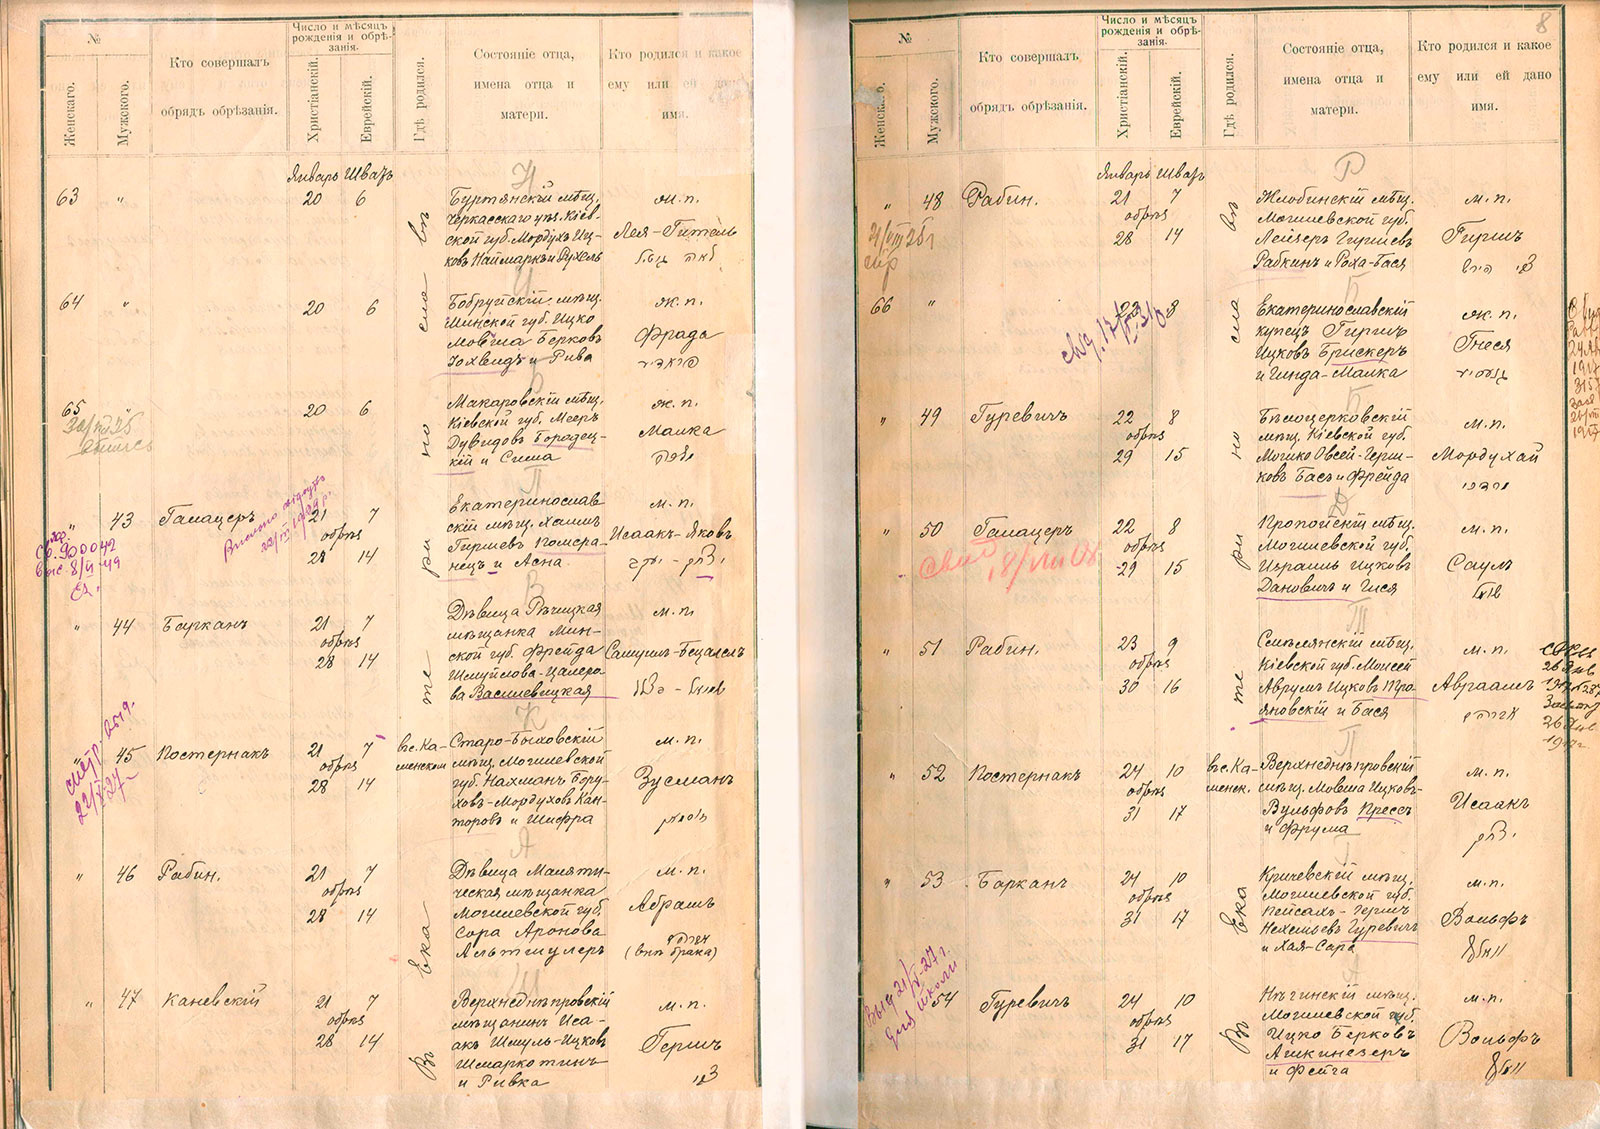 №
Число и мѣсяцъ
рожденія и обрѣ-
занія.
Женскаго.
Мужского.
Кто совершалъ
обрядъ обрѣзанія.
Христіанскій.
Еврейскій.
Гдѣ родился.
Состояніе отца,
имена отца и
матери.
Кто родился и какое
ему или ей дано
имя.
Январь Шватъ
63 " 20 6
мѣщ.
Черкасскаго уѣз. Кіев-
ской губ. Мордухъ Иц-
ковъ Наймаркъ и Рухель
ж.п.
Лея-Гитель
64 " 20 6
Бобруйскій мѣщ.
Минской губ. Ицко
Мовша Берковъ
Іохвидъ и Рива
ж.п.
Фрада
65 20 6
Макаровскій мѣщ.
Кіевской губ. Мееръ
Дувидовъ Городец-
кій и Сима
ж.п.
Малка
" 43 Галацеръ 21 7
обрѣз
28 14
Екатеринослав-
скій мѣщ. Хаимъ
Гиршевъ Помера-
нецъ и Асна.
м.п.
Исаакъ-Яковъ
" 44 Барканъ 21 7
обрѣз
28 14
Дѣвица Рѣчицкая
мѣщанка Мин-
ской губ. Фрейда
Шмуйлова-Цалеро-
ва Василевицкая
м.п.
Самуилъ-Бецалелъ
" 45 Постернакъ 21 7
обрѣз
28 14
въ с. Ка-
менском
Старо-Быховскій
мѣщ. Могилевской
губ. Нахманъ Бору-
ховъ-Мордуховъ Кан-
торовъ и Шифра
м.п.
Зусманъ
" 46 Рабин. 21 7
обрѣз
28 14
Дѣвица Маляти-
ческая мѣщанка
Могилевской губ.
Сора Аронова
Альтшулеръ
м.п.
Абрамъ
אברהם
(внѣ брака)
" 47 Каневскій 21 7
обрѣз
28 14
Верхнеднѣпровскій
мѣщанинъ Иса-
акъ Шмуль-Ицковъ
Шмаркотинъ
и Ривка
м.п.
Гершъ
Въ Екатеринославѣ
8
№
Число и мѣсяцъ
рожденія и обрѣ-
занія.
Мужского.
Кто совершалъ
обрядъ обрѣзанія.
Христіанскій.
Еврейскій.
Гдѣ родился.
Состояніе отца,
имена отца и
матери.
Кто родился и какое
ему или ей дано
имя.
Р
Январь Шватъ
" 48 Рабин. 21 7
обрѣз
28 14
Жлобинскій мѣщ.
Могилевской губ.
Лейзеръ Гиршевъ
Рабкинъ и Роха-Бася
м.п.
Гиршъ
66 " 8
Екатеринославскій
купецъ Гиршъ
Ицковъ Брискеръ
и Гинда-Малка
ж.п.
Гнеся
" 49 Гуревичъ 22 8
обрѣз
29 15
Бѣлоцерковскій
мѣщ. Кіевской губ.
Мошко Овсей-Герш-
ковъ Басъ и Фрейда
м.п.
Мордухай
מרדכי
" 50 Галацеръ 22 8
обрѣз
29 15
Пропойскій мѣщ.
Могилевской губ.
Израиль Ицковъ
Дановичъ и Гися
м.п.
Саулъ
שאול
" 51 Рабин. 23 9
обрѣз
30 16
Смѣлянскій мѣщ.
Кіевской губ. Моисей
Аврумъ Ицковъ Тро-
яновскій и Бася
м.п.
Авраамъ
אברהם
" 52 Постернакъ 24 10
обрѣз
31 17
въ с. Ка-
менск.
Верхнеднѣпровскій
мѣщ. Мовша Ицковъ-
Вульфовъ Прессъ
и Фрума
м.п.
Исаакъ
יצחק
" 53 Барканъ 24 10
обрѣз
31 17
Кричевскій мѣщ.
Могилевской губ.
Пейсахъ-Гершъ
Нехемьевъ Гуревичъ
и Хая-Сара
м.п.
Вольфъ
וואלף
54 Гуревичъ 24 10
обрѣз
31 17
мѣщ.
Могилевской губ.
Ицко Берковъ
Ашкинезеръ
и Фейга
м.п.
Вольфъ
וואלף
Въ Екатеринославѣ